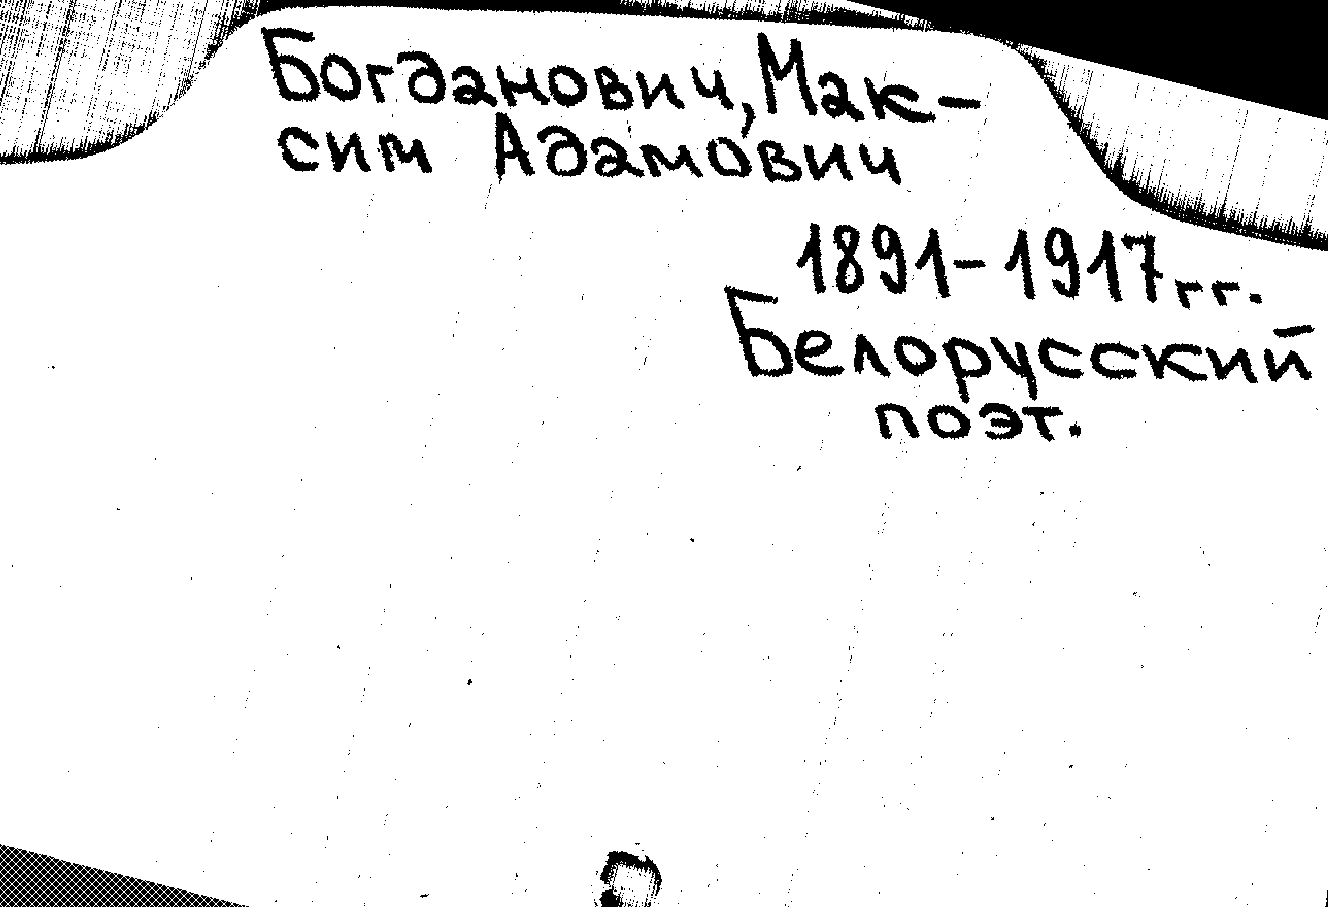 Богданович, Мак-
сим Адамович
1891-1917гг.
Белорусский
поэт.